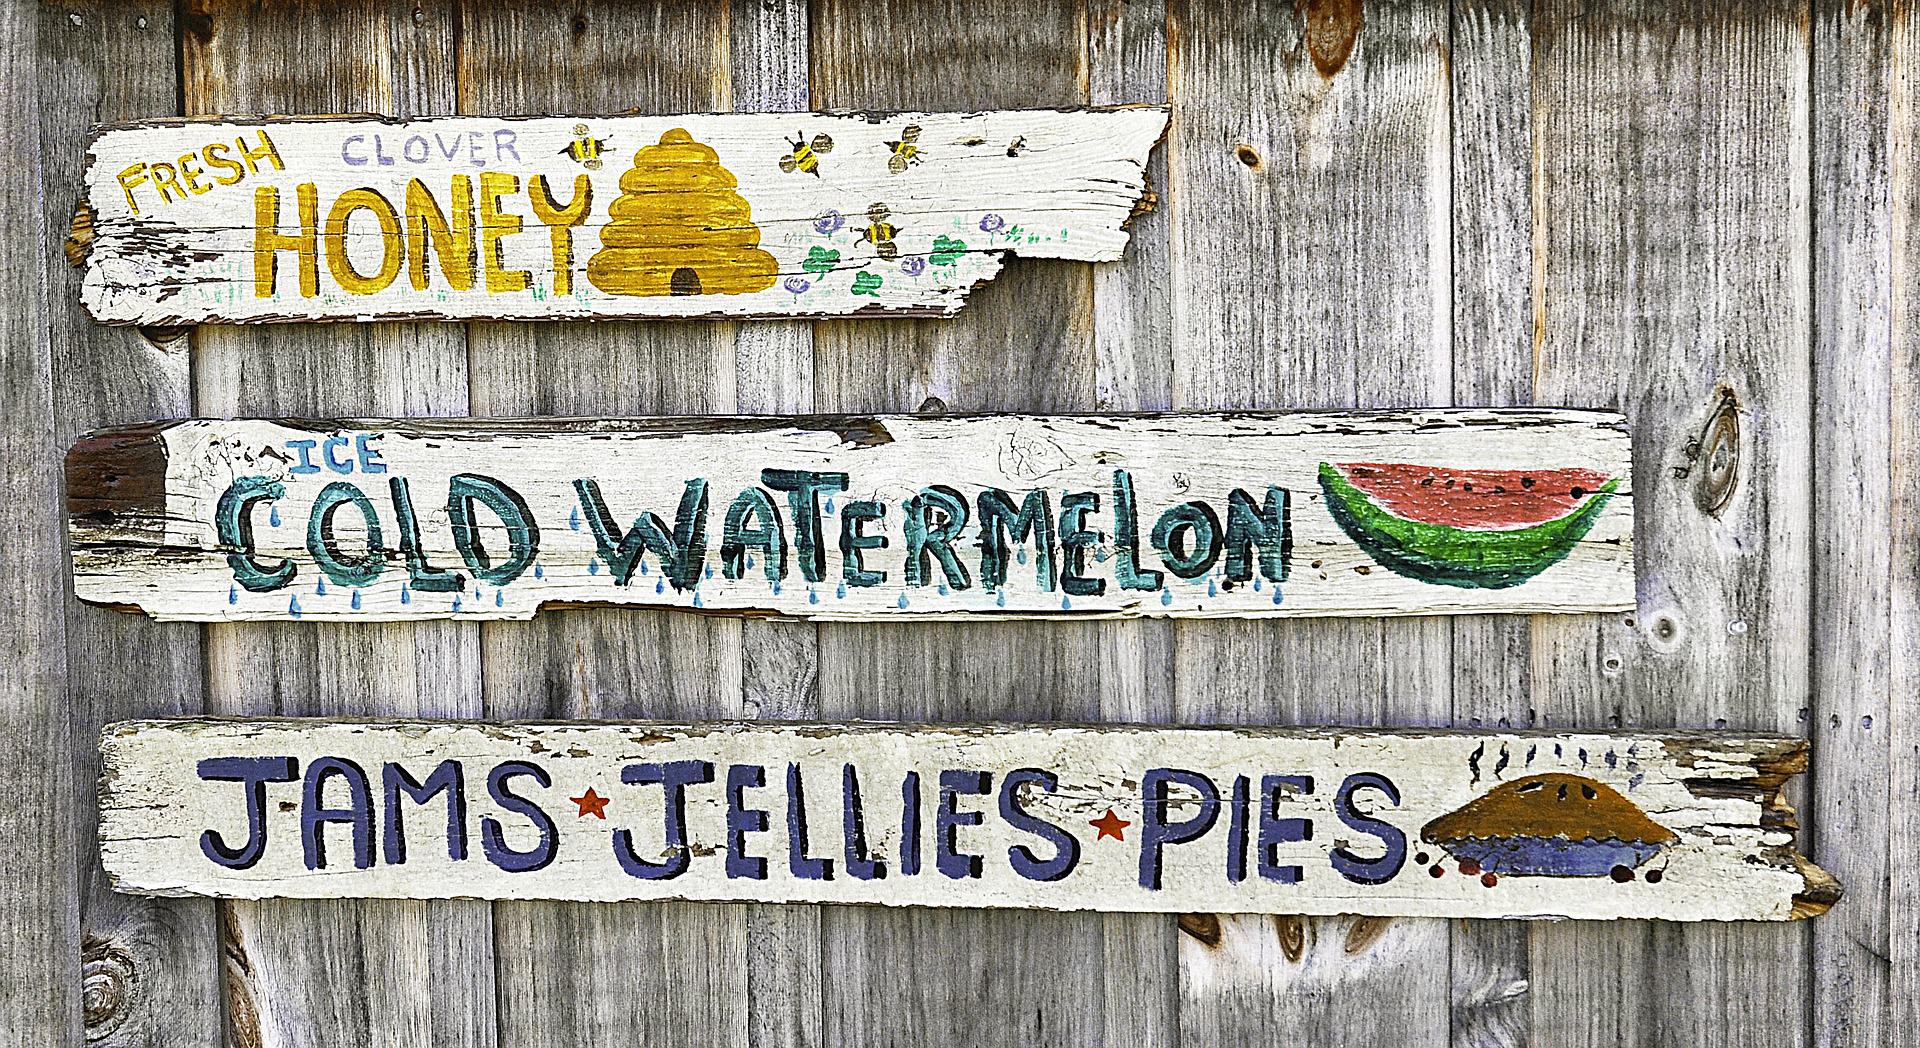 FRESH CLOVER
HONEY
ICE
COLD WATERMELON
JAMS ★ JELLIES ★ PIES